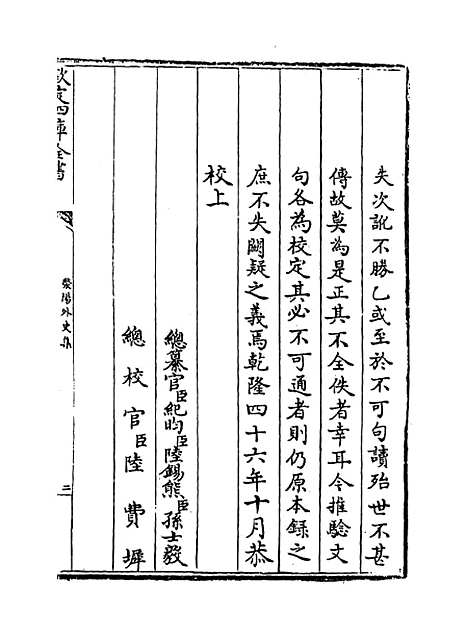 失次訛不勝乙或至於不可句讀殆世不甚
傳故莫為是正其不全佚者幸耳今推驗文
句各為校定其必不可通者則仍原本錄之
庶不失闕疑之義焉乾隆四十六年十月恭
校上
總纂官臣紀昀臣陸錫熊臣孫士毅
總校官臣陸費墀
欽定四庫全書
滎陽外史集
三